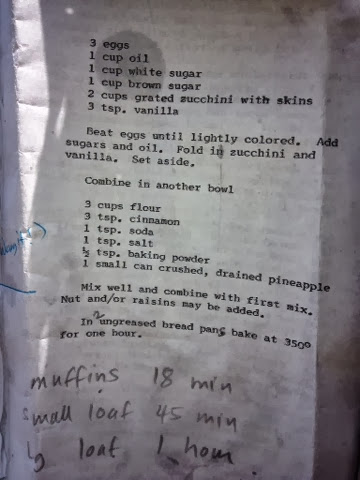 3 eggs
1 cup oil
1 cup white sugar
1 cup brown sugar
2 cups grated zucchini with skins
3 tsp. vanilla
Beat eggs until lightly colored. Add
sugars and oil. Fold in zucchini and
vanilla. Set aside.
Combine in another bowl
3 cups flour
3 tsp. cinnamon
1 tsp. soda
1 tsp. salt
½ tsp. baking powder
1 small can crushed, drained pineapple
Mix well and combine with first mix.
Nut and/or raisins may be added.
In 2 ungreased bread pans bake at 350º
for one hour.
muffins 18 min
small loaf 45 min
lg loaf 1 hour